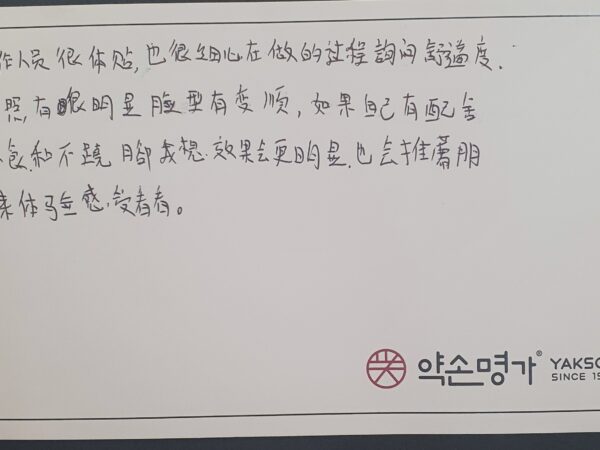 作人员很体贴,也很细心在做的过程詢问舒適度.
照有眼明显臉型有变順,如果自己有配合
食和不蹺脚我想.效果会更明显.也会推薦朋
来体验感.受看看。
약손명가®
YAKSO
SINCE 19